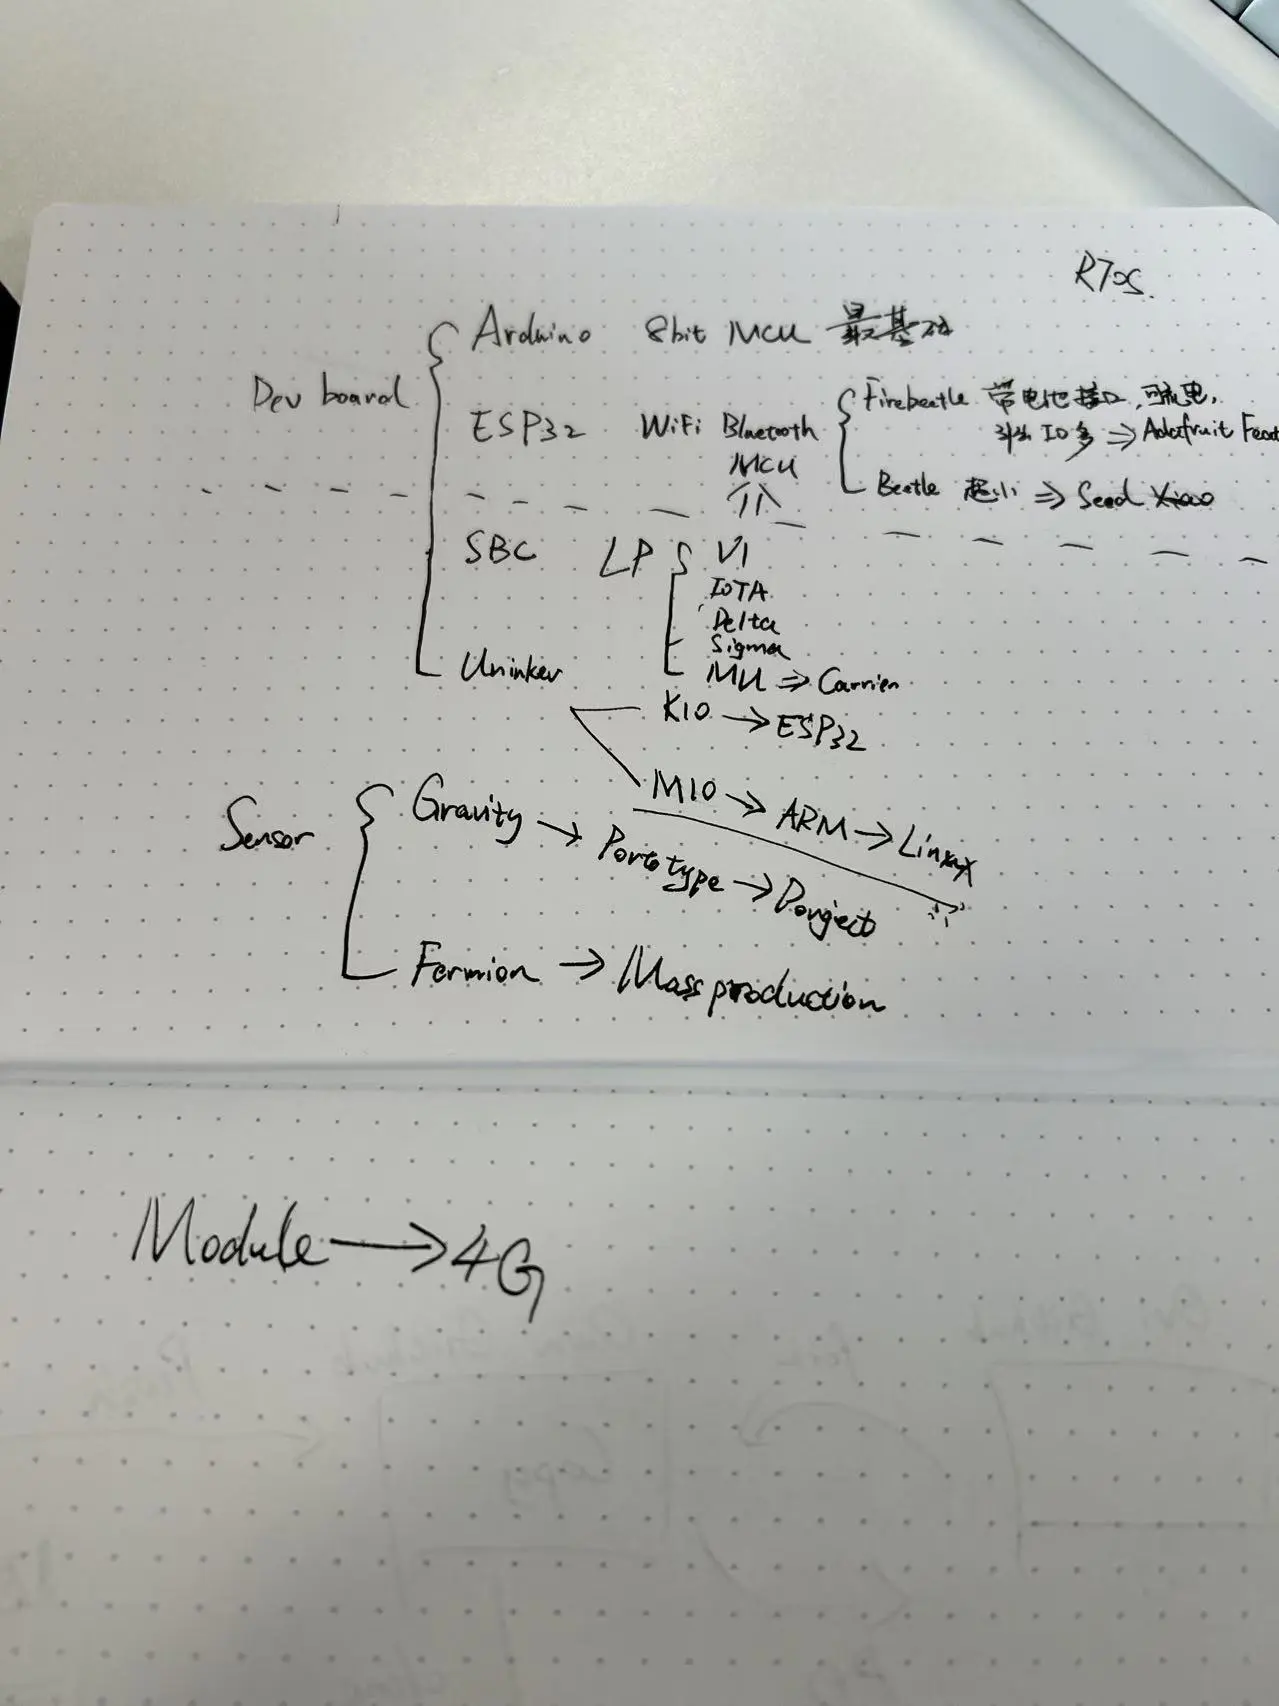 RTOS
Arduino 8bit MCU 最基础
Dev board
ESP32 WiFi Bluetooth MCU
Firebeetle 带电池接口,可充电,
引出 IO多 ⇒ Adafruit Feat
Beetle 超小 ⇒ Seed Xiao
SBC LP
V1
IOTA
Delta
Sigma
MU ⇒ Carrier
Uninker
K10 → ESP32
M10 → ARM → Linux
Sensor
Gravity → Portotype → Porject
Fermion → Mass production
Module → 4G